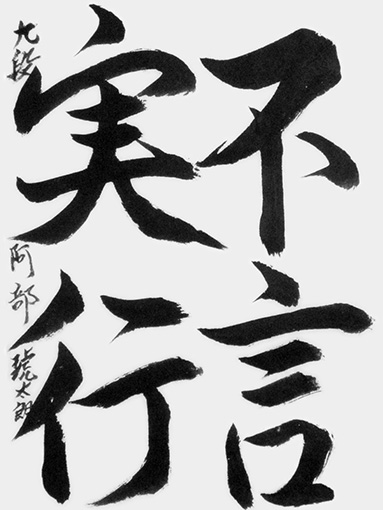 不言
実行
九段 阿部琥太郎